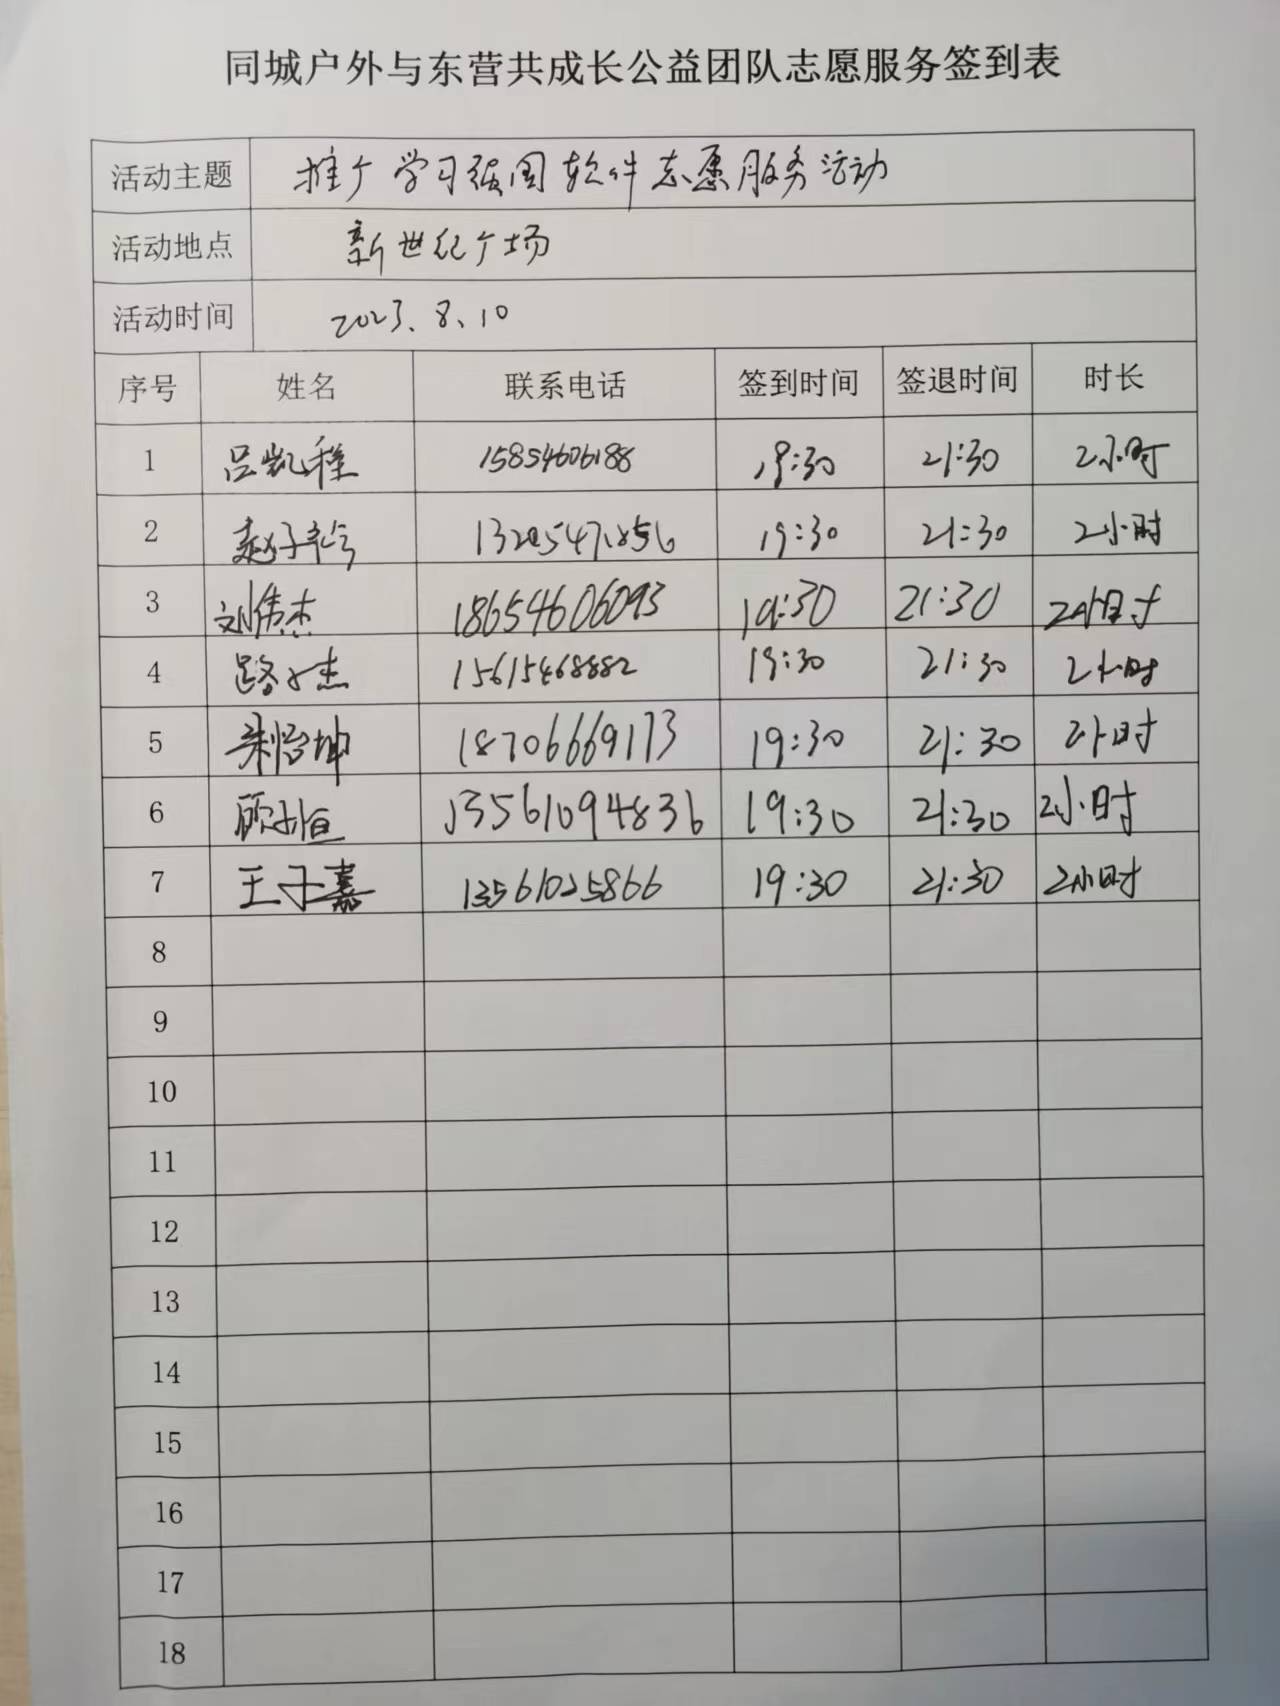 同城户外与东营共成长公益团队志愿服务签到表
活动主题 推广学习强国软件志愿服务活动
活动地点 新世纪广场
活动时间 2023.8.10
序号 姓名 联系电话 签到时间 签退时间 时长
1 吕凯程 15854606188 19:30 21:30 2小时
2 赵子 19:30 21:30 2小时
3 刘伟杰 18654606093 19:30 21:30 2小时
4 路 杰 15615468882 19:30 21:30 2小时
5 坤 18706669173 19:30 21:30 2小时
6 顾 恒 13561094836 19:30 21:30 2小时
7 王子嘉 13561025866 19:30 21:30 2小时
8
9
10
11
12
13
14
15
16
17
18